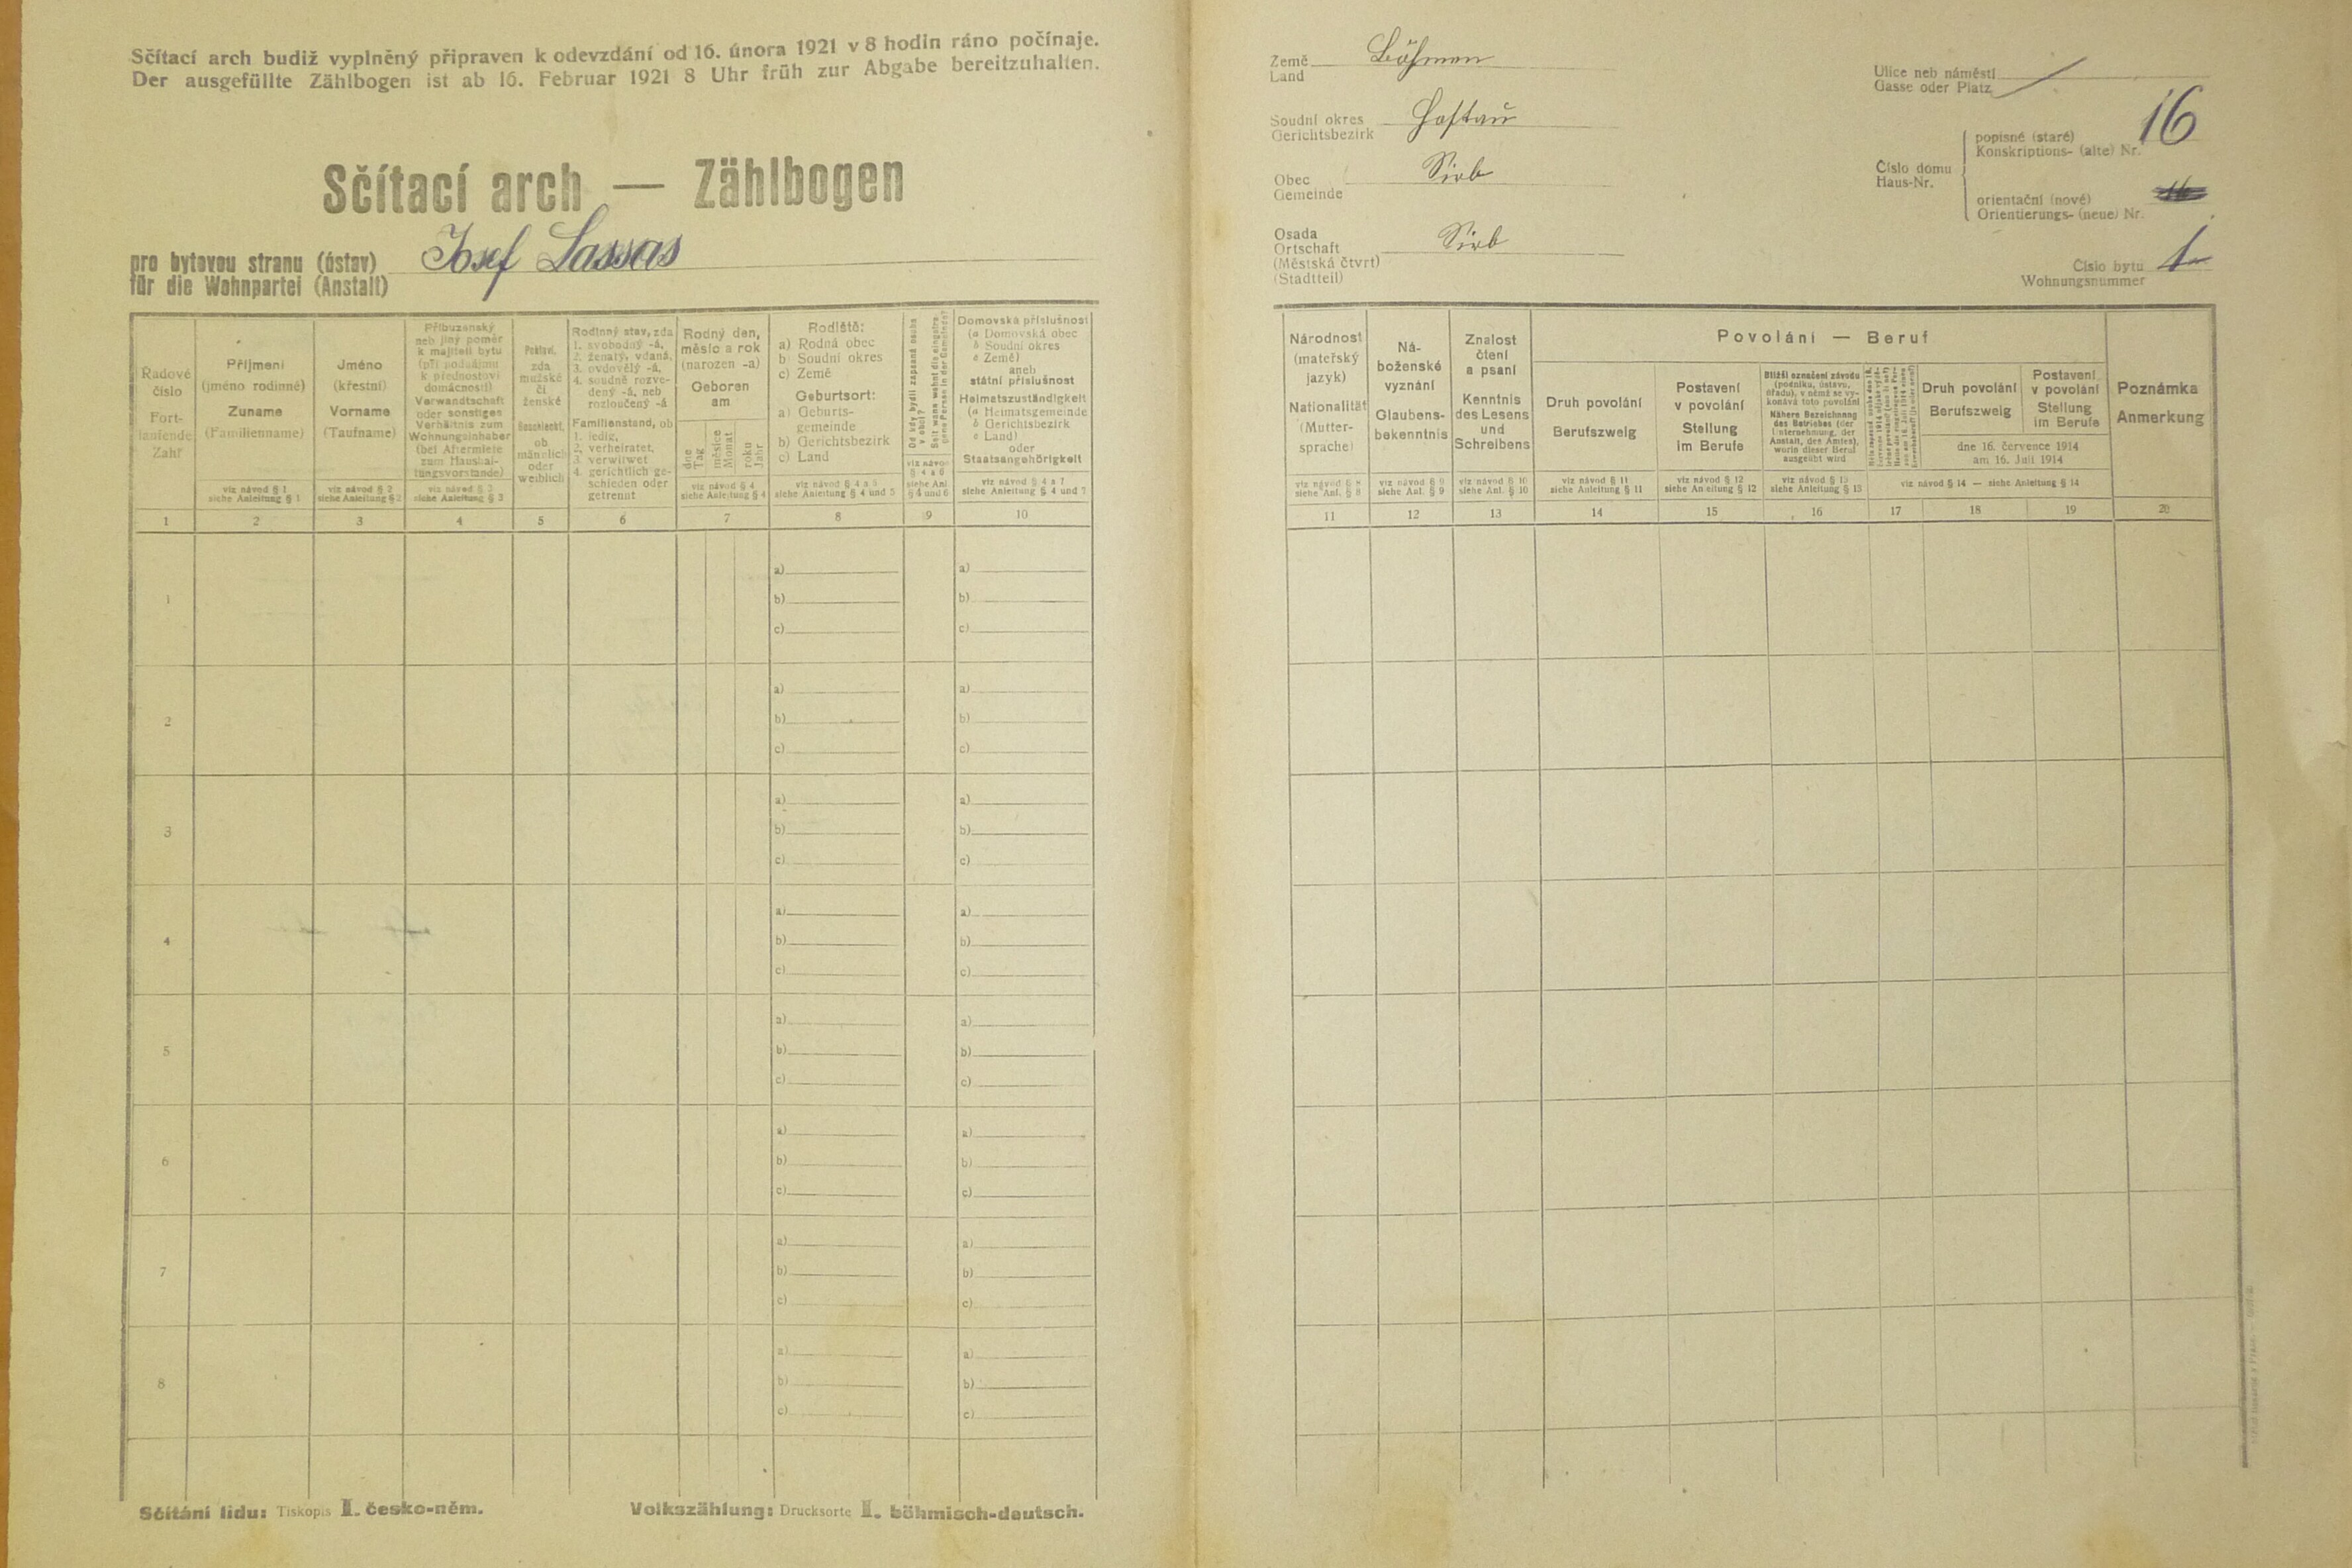 Sčítací arch budiž vyplněný připraven k odevzdání od 16. února 1921 v 8 hodin ráno počínaje.
Der ausgefüllte Zählbogen ist ab 16. Februar 1921 8 Uhr früh zur Abgabe bereitzuhalten.
Sčítací arch — Zählbogen
pro bytovou stranu (ústav)
für die Wohnpartei (Anstalt)
Josef Sassas
Řadové
číslo
Fort-
laufende
Zahl
1
Příjmení
(jméno rodinné)
Zuname
(Familienname)
viz návod § 1
siehe Anleitung § 1
2
Jméno
(křestní)
Vorname
(Taufname)
viz návod § 2
siehe Anleitung § 2
3
Příbuzenský
neb jiný poměr
k majiteli bytu
(při podnájmu
k přednostovi
domácnosti)
Verwandtschaft
oder sonstiges
Verhältnis zum
Wohnungsinhaber
(bei Aftermiete
zum Haushal-
tungsvorstande)
viz návod § 3
siehe Anleitung § 3
4
Pohlaví,
zda
mužské
či
ženské
Geschlecht,
ob
männlich
oder
weiblich
5
Rodinný stav, zda
1. svobodný -á,
2. ženatý, vdaná,
3. ovdovělý -á,
4. soudně rozve-
dený -á, neb
rozloučený -á
Familienstand, ob
1. ledig,
2. verheiratet,
3. verwitwet
4. gerichtlich ge-
schieden oder
getrennt
6
Rodný den,
měsíc a rok
(narozen -a)
Geboren
am
dne
Tag
měsíce
Monat
roku
Jahr
viz návod § 4
siehe Anleitung § 4
7
Rodiště:
a) Rodná obec
b) Soudní okres
c) Země
Geburtsort:
a) Geburts-
gemeinde
b) Gerichtsbezirk
c) Land
viz návod § 4 a 5
siehe Anleitung § 4 und 5
8
Od kdy bydlí zapsaná osoba
v obci?
Seit wann wohnt die eingetra-
gene Person in der Gemeinde?
viz návod
§ 4 a 6
siehe Anl.
§ 4 und 6
9
Domovská příslušnost
(a Domovská obec
b Soudní okres
c Země)
aneb
státní příslušnost
Heimatszuständigkeit
(a Heimatsgemeinde
b Gerichtsbezirk
c Land)
oder
Staatsangehörigkeit
viz návod § 4 a 7
siehe Anleitung § 4 und 7
10
1
a) a)
b) b)
c) c)
2
a) a)
b) b)
c) c)
3
a) a)
b) b)
c) c)
4
a) a)
b) b)
c) c)
5
a) a)
b) b)
c) c)
6
a) a)
b) b)
c) c)
7
a) a)
b) b)
c) c)
8
a) a)
b) b)
c) c)
Sčítání lidu: Tiskopis I. česko-něm.
Volkszählung: Drucksorte I. böhmisch-deutsch.
Země
Land
Böhmen
Soudní okres
Gerichtsbezirk
Hostau
Obec
Gemeinde
Sirb
Osada
Ortschaft
(Městská čtvrť)
(Stadtteil)
Sirb
Ulice neb náměstí
Gasse oder Platz
Číslo domu
Haus-Nr.
popisné (staré)
Konskriptions- (alte) Nr.
16
orientační (nové)
Orientierungs- (neue) Nr.
Číslo bytu
Wohnungsnummer
1
Národnost
(mateřský
jazyk)
Nationalität
(Mutter-
sprache)
viz návod § 8
siehe Anl. § 8
11
Ná-
boženské
vyznání
Glaubens-
bekenntnis
viz návod § 9
siehe Anl. § 9
12
Znalost
čtení
a psaní
Kenntnis
des Lesens
und
Schreibens
viz návod § 10
siehe Anl. § 10
13
Povolání — Beruf
Druh povolání
Berufszweig
viz návod § 11
siehe Anleitung § 11
14
Postavení
v povolání
Stellung
im Berufe
viz návod § 12
siehe Anleitung § 12
15
Bližší označení závodu
(podniku, ústavu,
úřadu), v němž se vy-
konává toto povolání
Nähere Bezeichnung
des Betriebes (der
Unternehmung, der
Anstalt, des Amtes),
worin dieser Beruf
ausgeübt wird
viz návod § 13
siehe Anleitung § 13
16
17
Druh povolání
Berufszweig
Postavení
v povolání
Stellung
im Berufe
dne 16. července 1914
am 16. Juli 1914
viz návod § 14 — siehe Anleitung § 14
18
19
Poznámka
Anmerkung
20